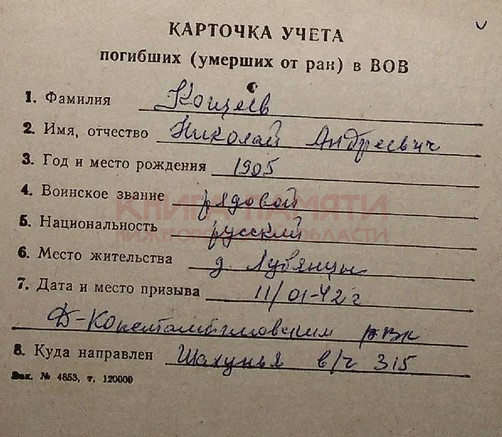 КАРТОЧКА УЧЕТА
погибших (умерших от ран) в ВОВ
1. Фамилия Кощеев
2. Имя, отчество Николай Андреевич
3. Год и место рождения 1905
4. Воинское звание рядовой
КНИГА ПАМЯТИ
5. Национальность русский
НИЖЕГОРОДСКОЙ ОБЛАСТИ
6. Место жительства д. Лубянцы
7. Дата и место призыва 11/01-42 г
рвк
8. Куда направлен Шахунья в/ч 315
Зак. № 4853, т. 120000